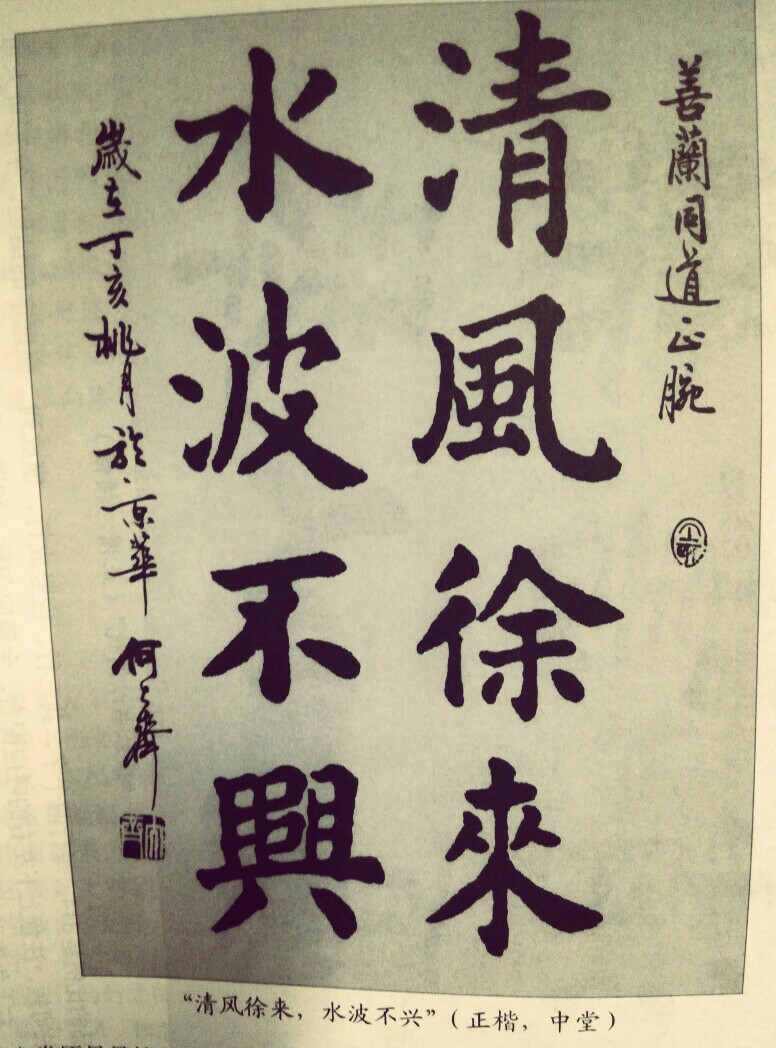 善蘭同道正腕
清風徐來
水波不興
歲在丁亥桃月於京華 何大齊
“清风徐来，水波不兴”（正楷，中堂）